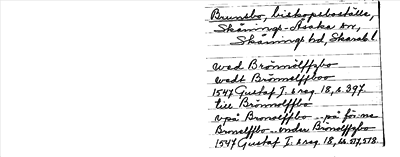 Brunsbo, biskopsboställe,
Skånings-Åsaka sn,
Skånings hd, Skarab. l.
wed Brönnolffzbo
wedt Brönnolffboo
1547 Gustaf I:s reg. 18, s. 397.
till Brönnolffbo
vpå Bronolffbo .. på för:ne
Bronolffbo .. under Brönolffzbo
1547 Gustaf I:s reg. 18, ss. 517, 518.